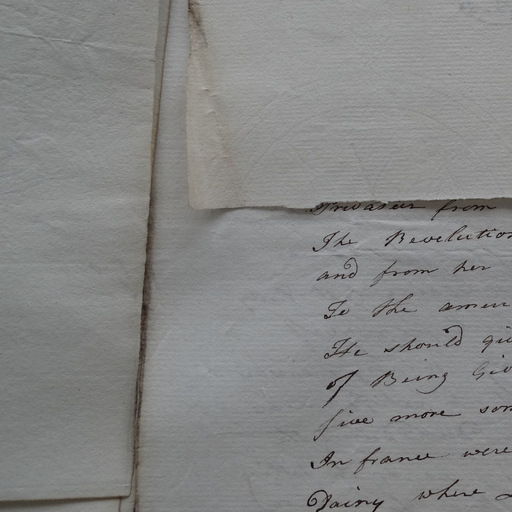 Privateer from
The Revolution
and from her
To the amer
He should gi
of Being Giv
five more som
In france were
Dainy where